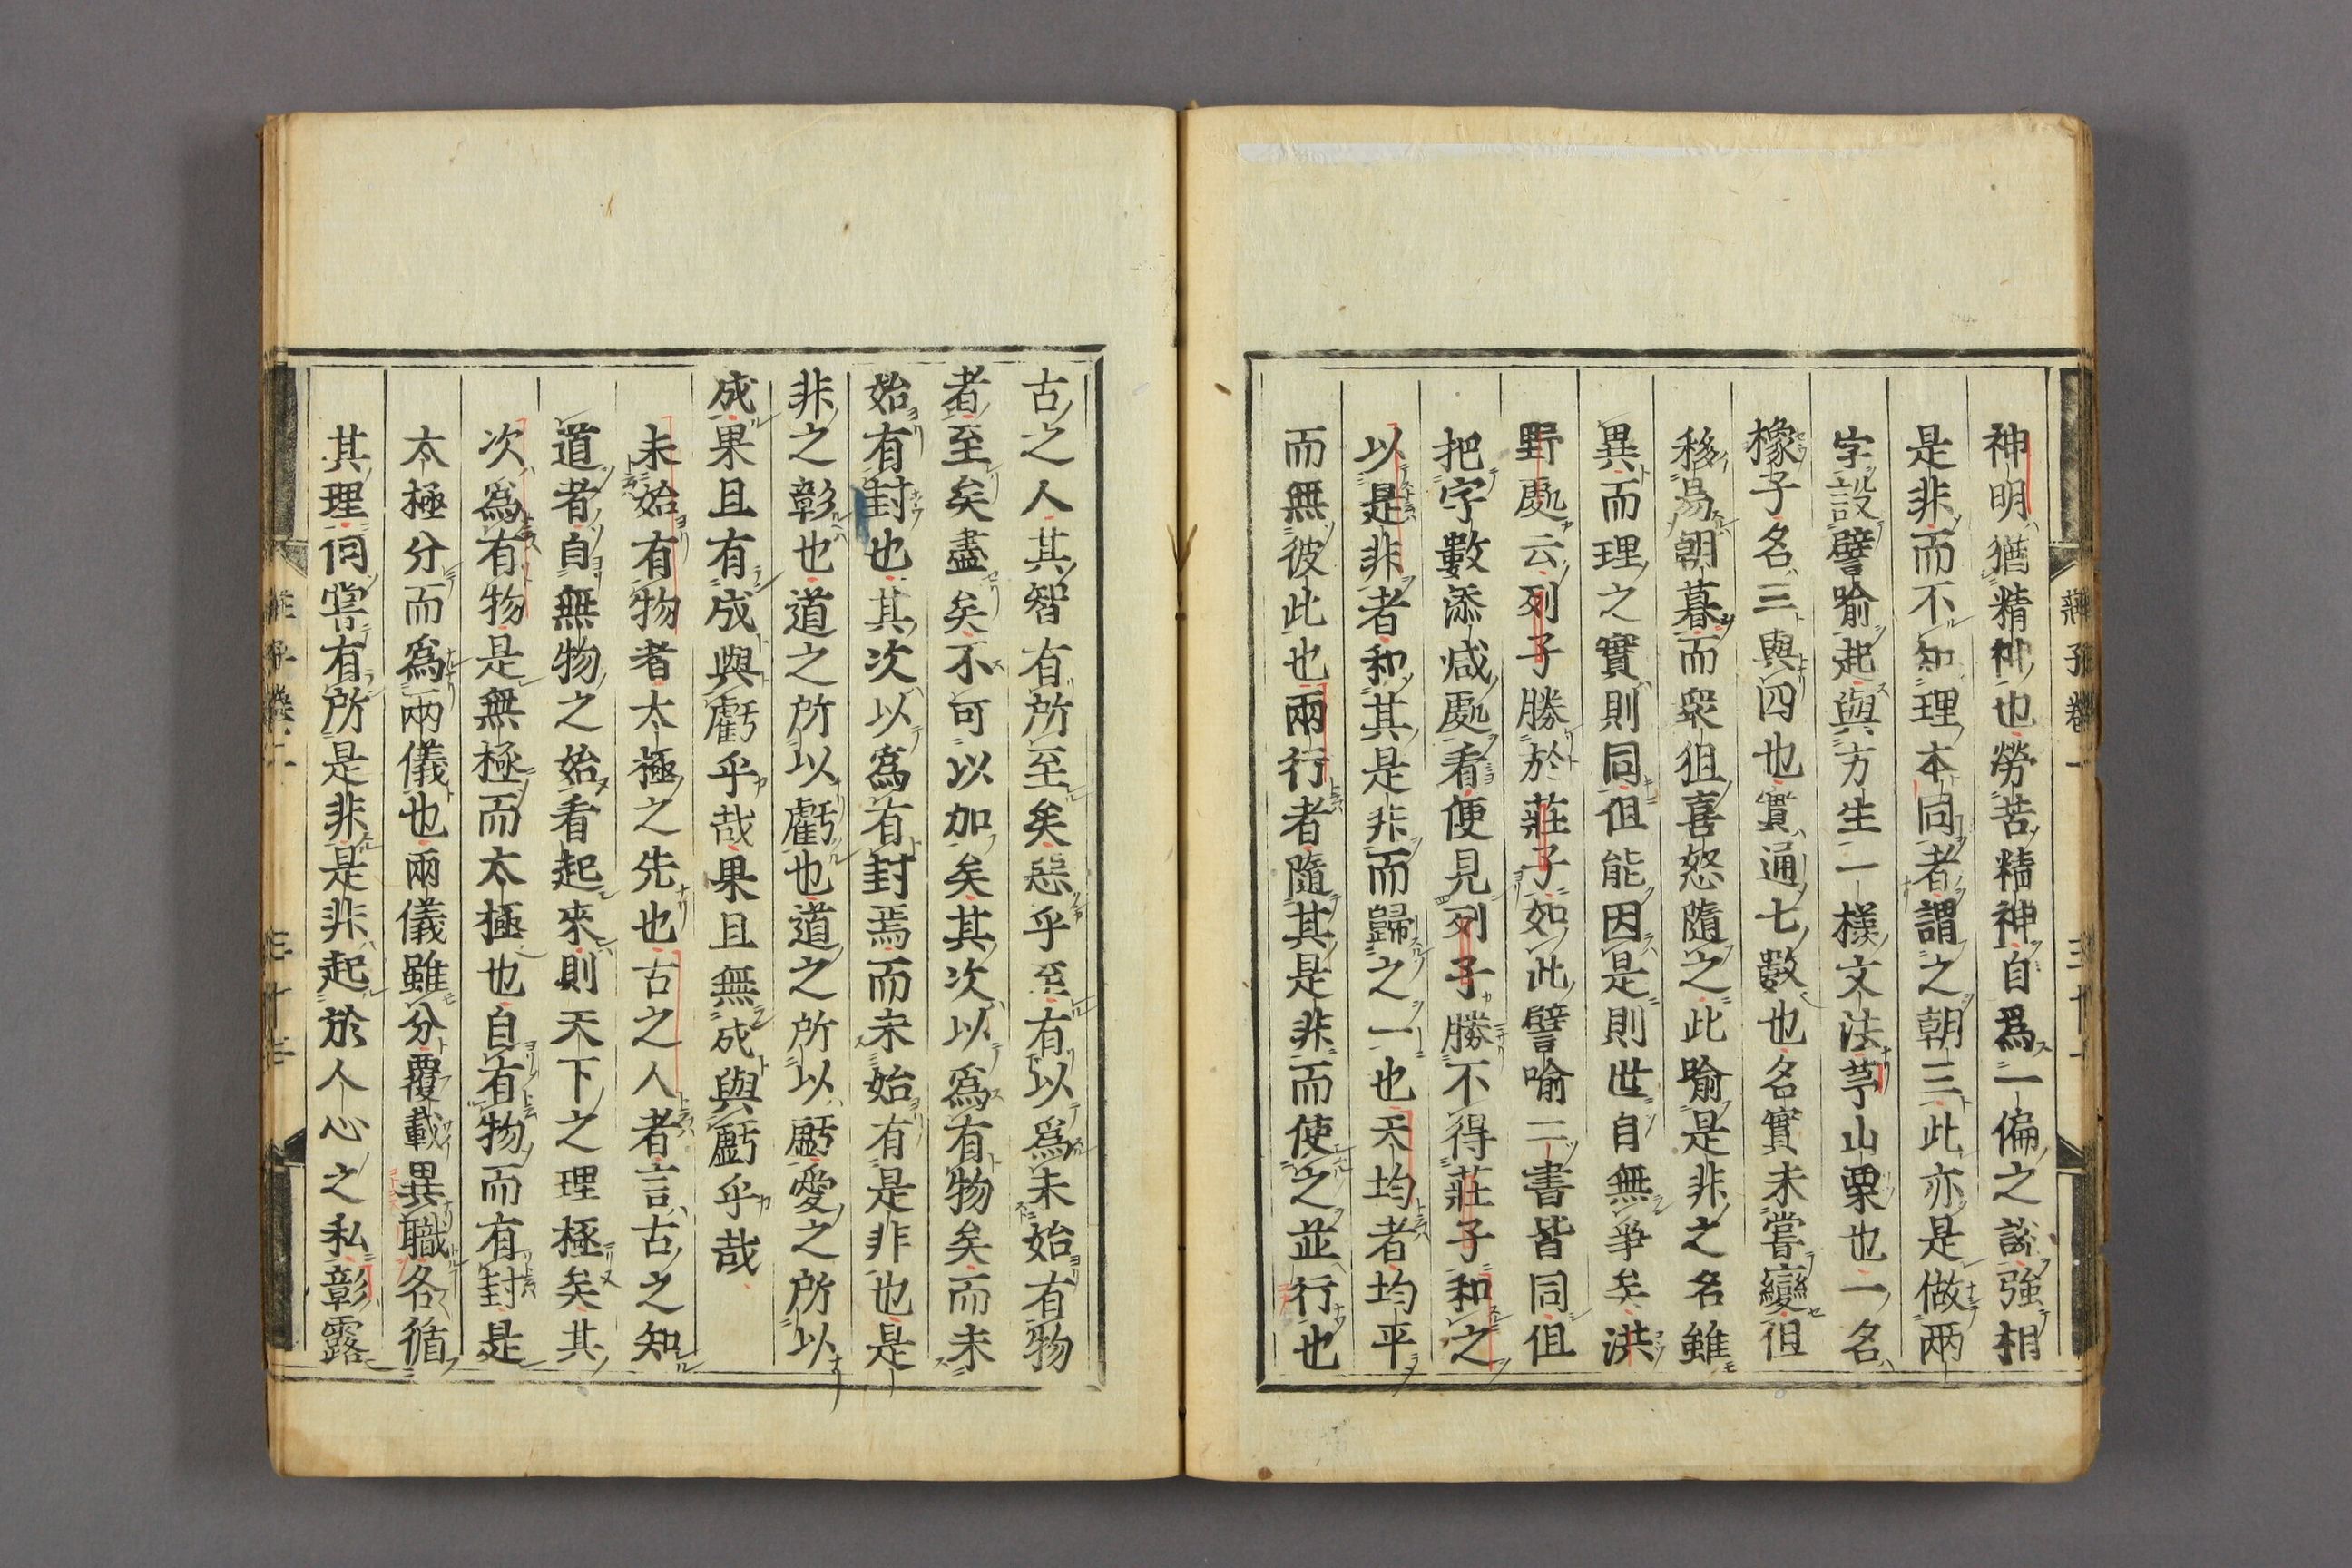 神明猶精神也勞苦精神自爲一偏之説強相
是非而不知理本同者謂之朝三此亦是做兩
字設譬喻起與方生一樣文法芧山栗也一名
橡子名三與四也實通七數也名實未嘗變但
移易朝暮而衆狙喜怒隨之此喻是非之名雖
異而理之實則同但能因是則世自無爭矣洪
野處云列子勝於莊子如此譬喻二書皆同但
把字數添減處看便見列子勝不得莊子和之
以是非者和其是非而歸之一也天均者均平
而無彼此也兩行者隨其是非而使之並行也
古之人其智有所至矣惡乎至有以爲未始有物
者至矣盡矣不可以加矣其次以爲有物矣而未
始有封也其次以爲有封焉而未始有是非也是
非之彰也道之所以虧也道之所以虧愛之所以
成果且有成與虧乎哉果且無成與虧乎哉
未始有物者太極之先也古之人者言古之知
道者自無物之始看起來則天下之理極矣其
次爲有物是無極而太極也自有物而有封是
太極分而爲兩儀也兩儀雖分覆載異職各循
其理何嘗有所是非是非起於人心之私彰露